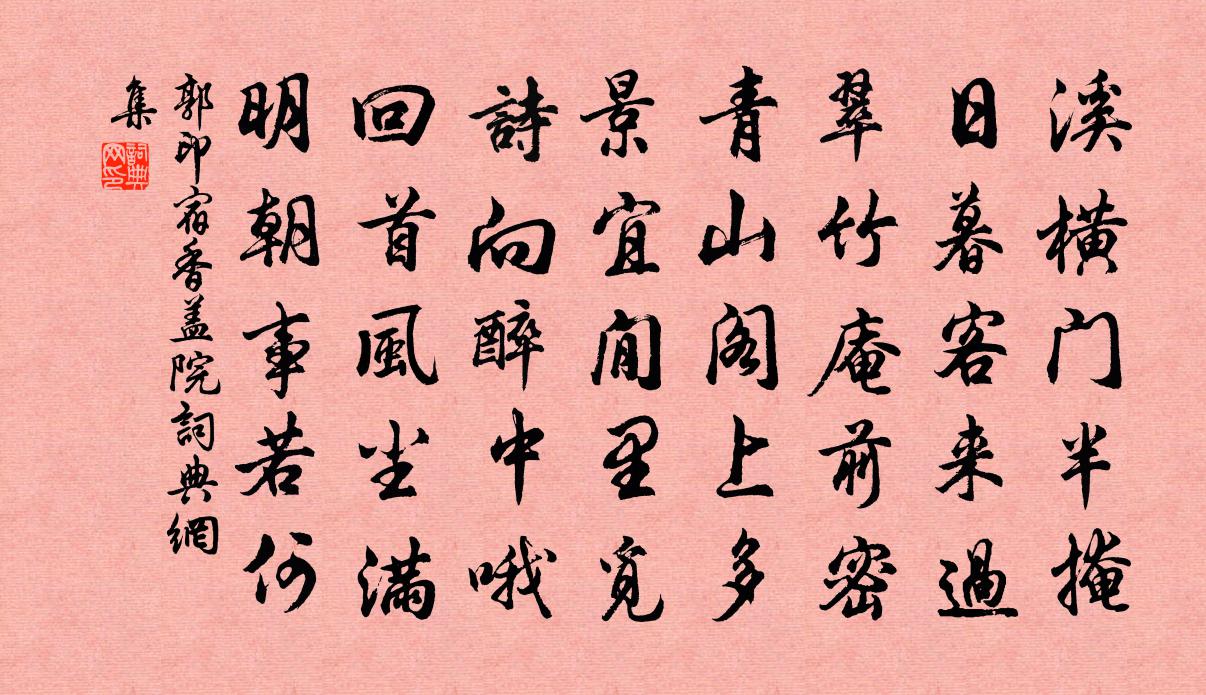 溪橫门半掩
日暮客来過
翠竹庵前密
青山阁上多
景宜閒里覓
詩向醉中哦
回首風尘滿
明朝事若何
郭印宿香盖院詞典網
集
詞典
网印